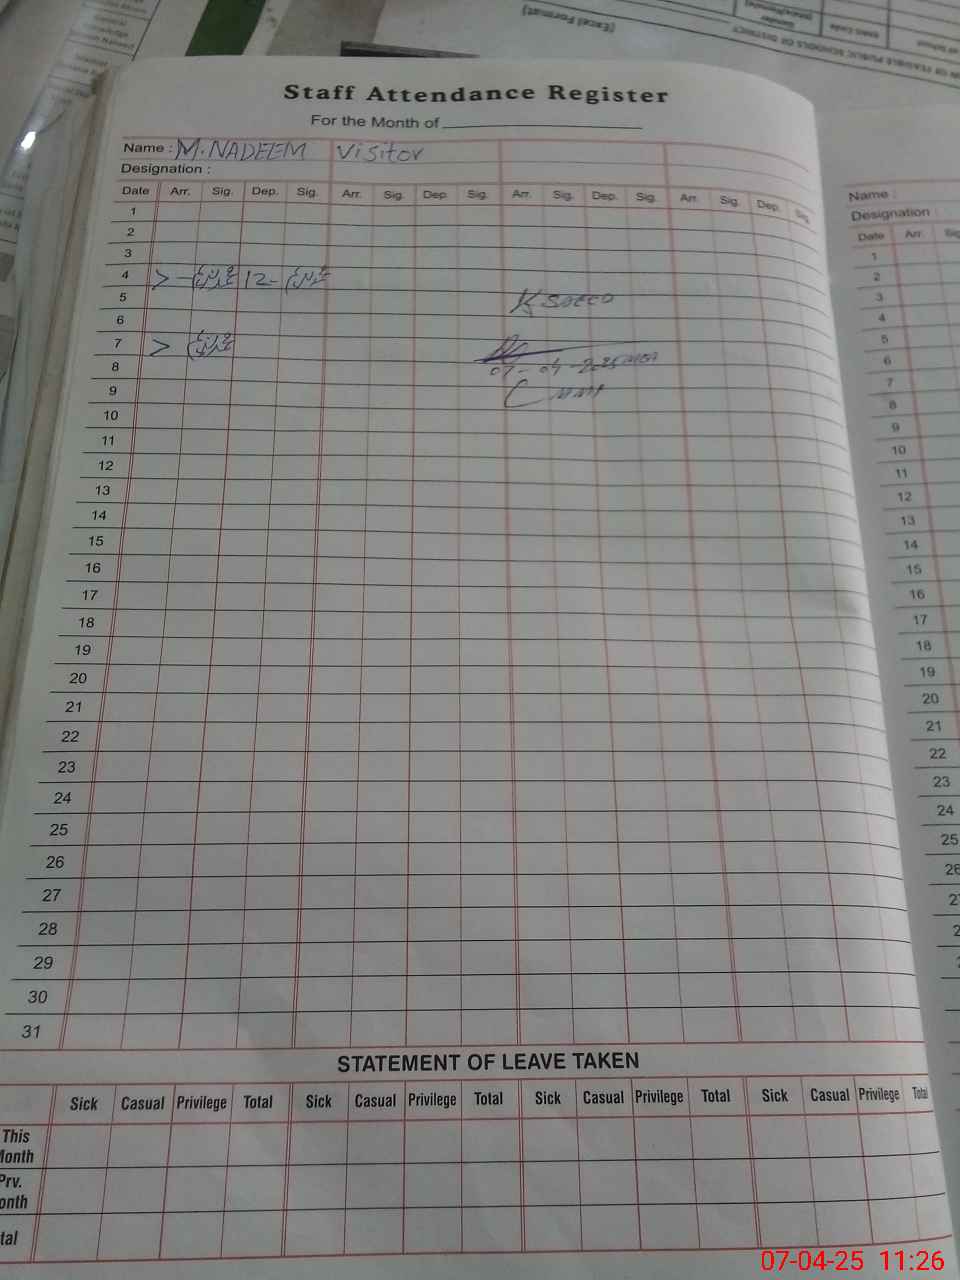 Staff Attendance Register
For the Month of
Name : M.NADEEM Visitor
Designation :
Date Arr. Sig. Dep. Sig. Arr. Sig. Dep. Sig. Arr. Sig. Dep. Sig. Arr. Sig. Dep. Sig.
1
2
3
4 12-
5
6
7
8
07-04-2025
9
10
11
12
13
14
15
16
17
18
19
20
21
22
23
24
25
26
27
28
29
30
31
STATEMENT OF LEAVE TAKEN
Sick Casual Privilege Total Sick Casual Privilege Total Sick Casual Privilege Total Sick Casual Privilege Total
This
Month
Prv.
Name :
Designation :
Date Arr. Sig
1
2
3
4
5
6
7
8
9
10
11
12
13
14
15
16
17
18
19
20
21
22
23
24
25
(Excel Format)
07-04-25 11:26